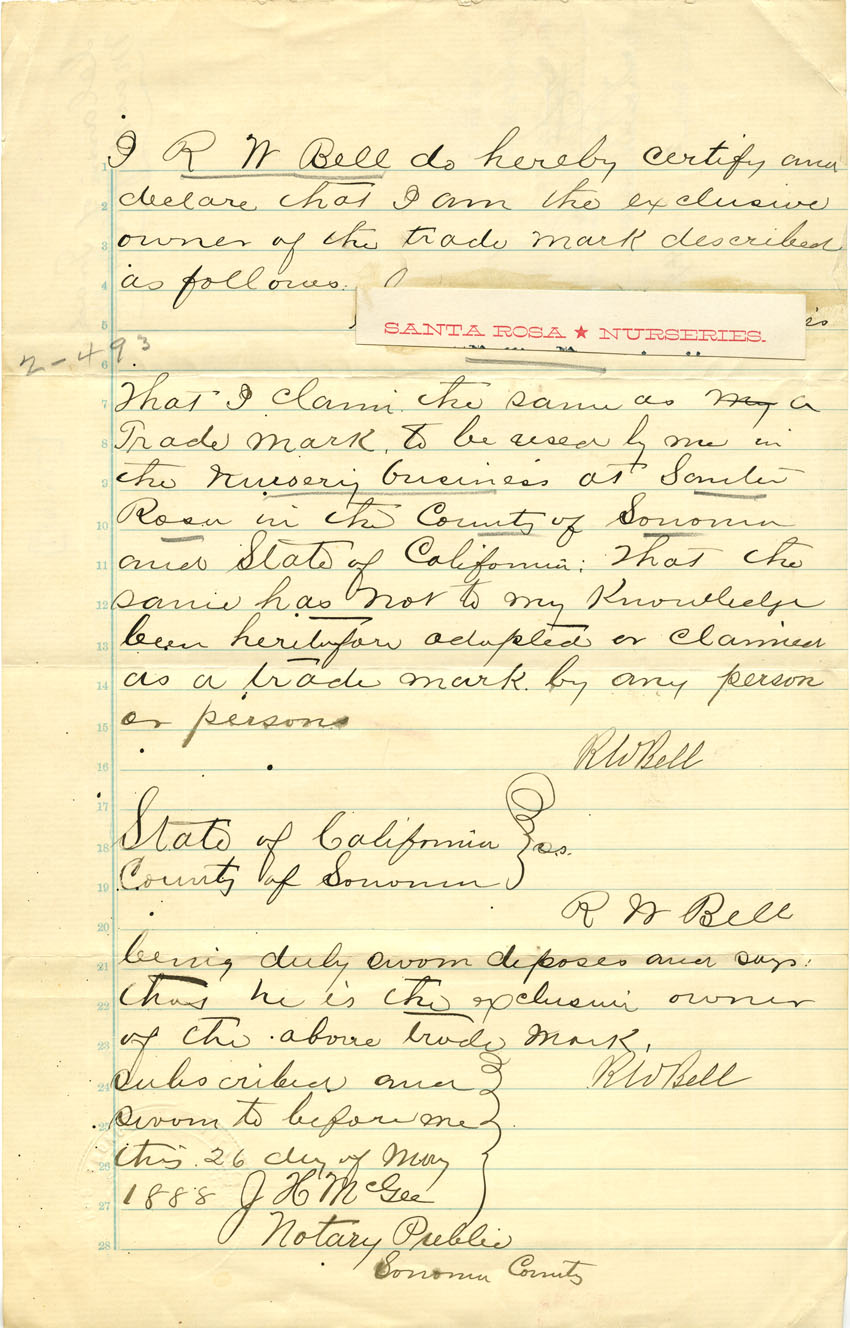 I R W Bell do hereby certify and
declare that I am the exclusive
owner of the trade mark described
as follows.
SANTA ROSA ★ NURSERIES.
2-493
That I claim the same as my a
Trade mark, to be used by me in
the Nursery business at Santa
Rosa in the County of Sonoma
and State of California; That the
same has not to my Knowledge
been heretofore adopted or claimed
as a trade mark by any person
or persons
RWBell
State of California
County of Sonoma } ss.
R W Bell
being duly sworn deposes and says:
that he is the exclusive owner
of the above trade mark.
RWBell
subscribed and
sworn to before me
this 26 day of May
1888 J H McGee
Notary Public
Sonoma County
1
2
3
4
5
6
7
8
9
10
11
12
13
14
15
16
17
18
19
20
21
22
23
24
25
26
27
28